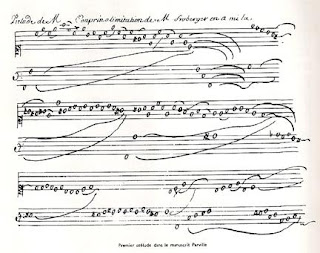 Prelude de M Couprin alimitation de M. froberger en a mi la
Premier prélude dans le manuscrit Parville